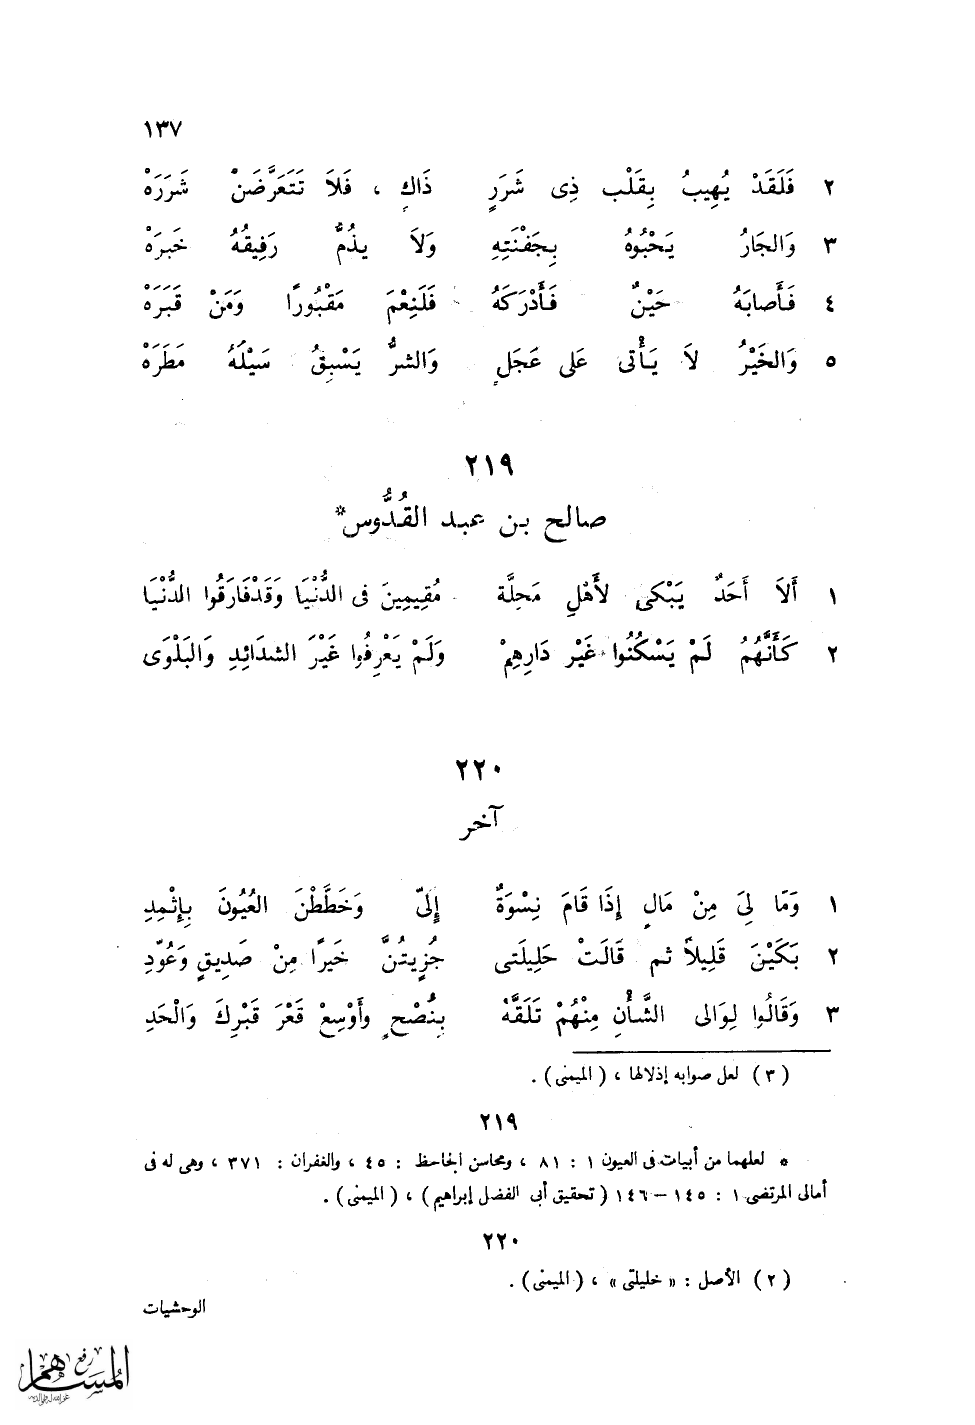 ١٣٧
٢ فَلَقَدْ يُهِيبُ بِقَلْب ذِى شَرَرٍ ذَاكٍ ، فَلاَ تَتَعَرَّضَنْ شَرَرَهْ
٣ وَالجَارُ يَحْبُوهُ بِجَفْنَتِهِ وَلاَ يذُمُّ رَفِيقُهُ خَبَرَهْ
٤ فَأَصابَهُ حَيْنٌ فَأَدْرَكَهُ فَلَنِعْمَ مَقْبُورًا وَمَنْ قَبَرَهْ
٥ وَالخَيْرُ لاَ يَأْتى عَلى عَجَلٍ وَالشرُّ يَسْبِقُ سَيْلُهُ مَطَرَهْ
٢١٩
صالح بن عبد القُدُّوس*
١ أَلاَ أَحَدٌ يَبْكى لأَهْلِ مَحِلَّة مُقِيمِينَ فى الدُّنْيَا وَقَدْفَارَقُوا الدُّنْيَا
٢ كَأَنَّهُمُ لَمْ يَسْكُنُوا غَيْر دَارِهِمْ وَلَمْ يَعْرِفُوا غَيْرَ الشدَائِدِ وَالبَلْوَى
٢٢٠
آخر
١ وَمَا لِىَ مِنْ مَالٍ إِذَا قَامَ نِسْوَةٌ إِلىّ وَخَطَّطْنَ العُيُونَ بِإِثْمِدِ
٢ بَكَيْنَ قَلِيلاً ثم قَالَتْ حَلِيلَتى جُزِيتُنَّ خَيرًا مِنْ صَدِيقٍ وَعُوّدِ
٣ وَقَالُوا لِوَالى الشَّأْنِ مِنْهُمْ تَلَقَّهْ بِنُصْحٍ وأَوْسِعْ قَعْرَ قَبْرِكَ وَالْحَدِ
( ٣ ) لعل صوابه إذلالها ، ( الميمنى ) .
٢١٩
* لعلهما من أبيات فى العيون ١ : ٨١ ، ومحاسن الجاحظ : ٤٥ ، والغفران : ٣٧١ ، وهى له فى
أمالى المرتضى ١ : ١٤٥ – ١٤٦ ( تحقيق أبى الفضل إبراهيم ) ، ( الميمنى ) .
٢٢٠
( ٢ ) الأصل : « خليلتى » ، ( الميمنى ) .
الوحشيات